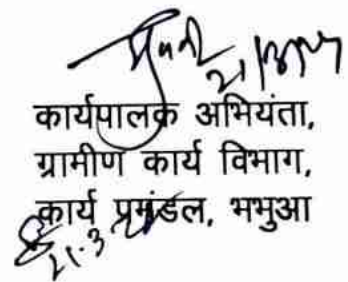 कार्यपालक अभियंता,
ग्रामीण कार्य विभाग,
कार्य प्रमंडल, भभुआ
21.3